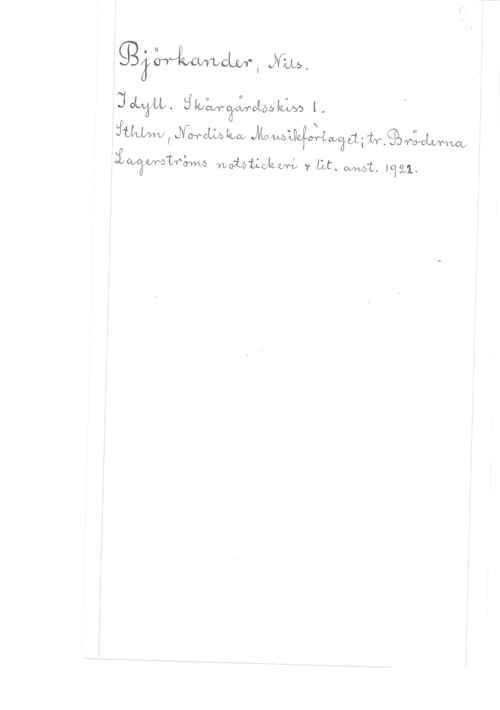 Björkander, Nils.
Idyll. Skärgårdsskiss 1.
Sthlm, Nordiska Musikförlaget; tr. Bröderna
Lagerströms notstickeri & lit. anst. 1921.